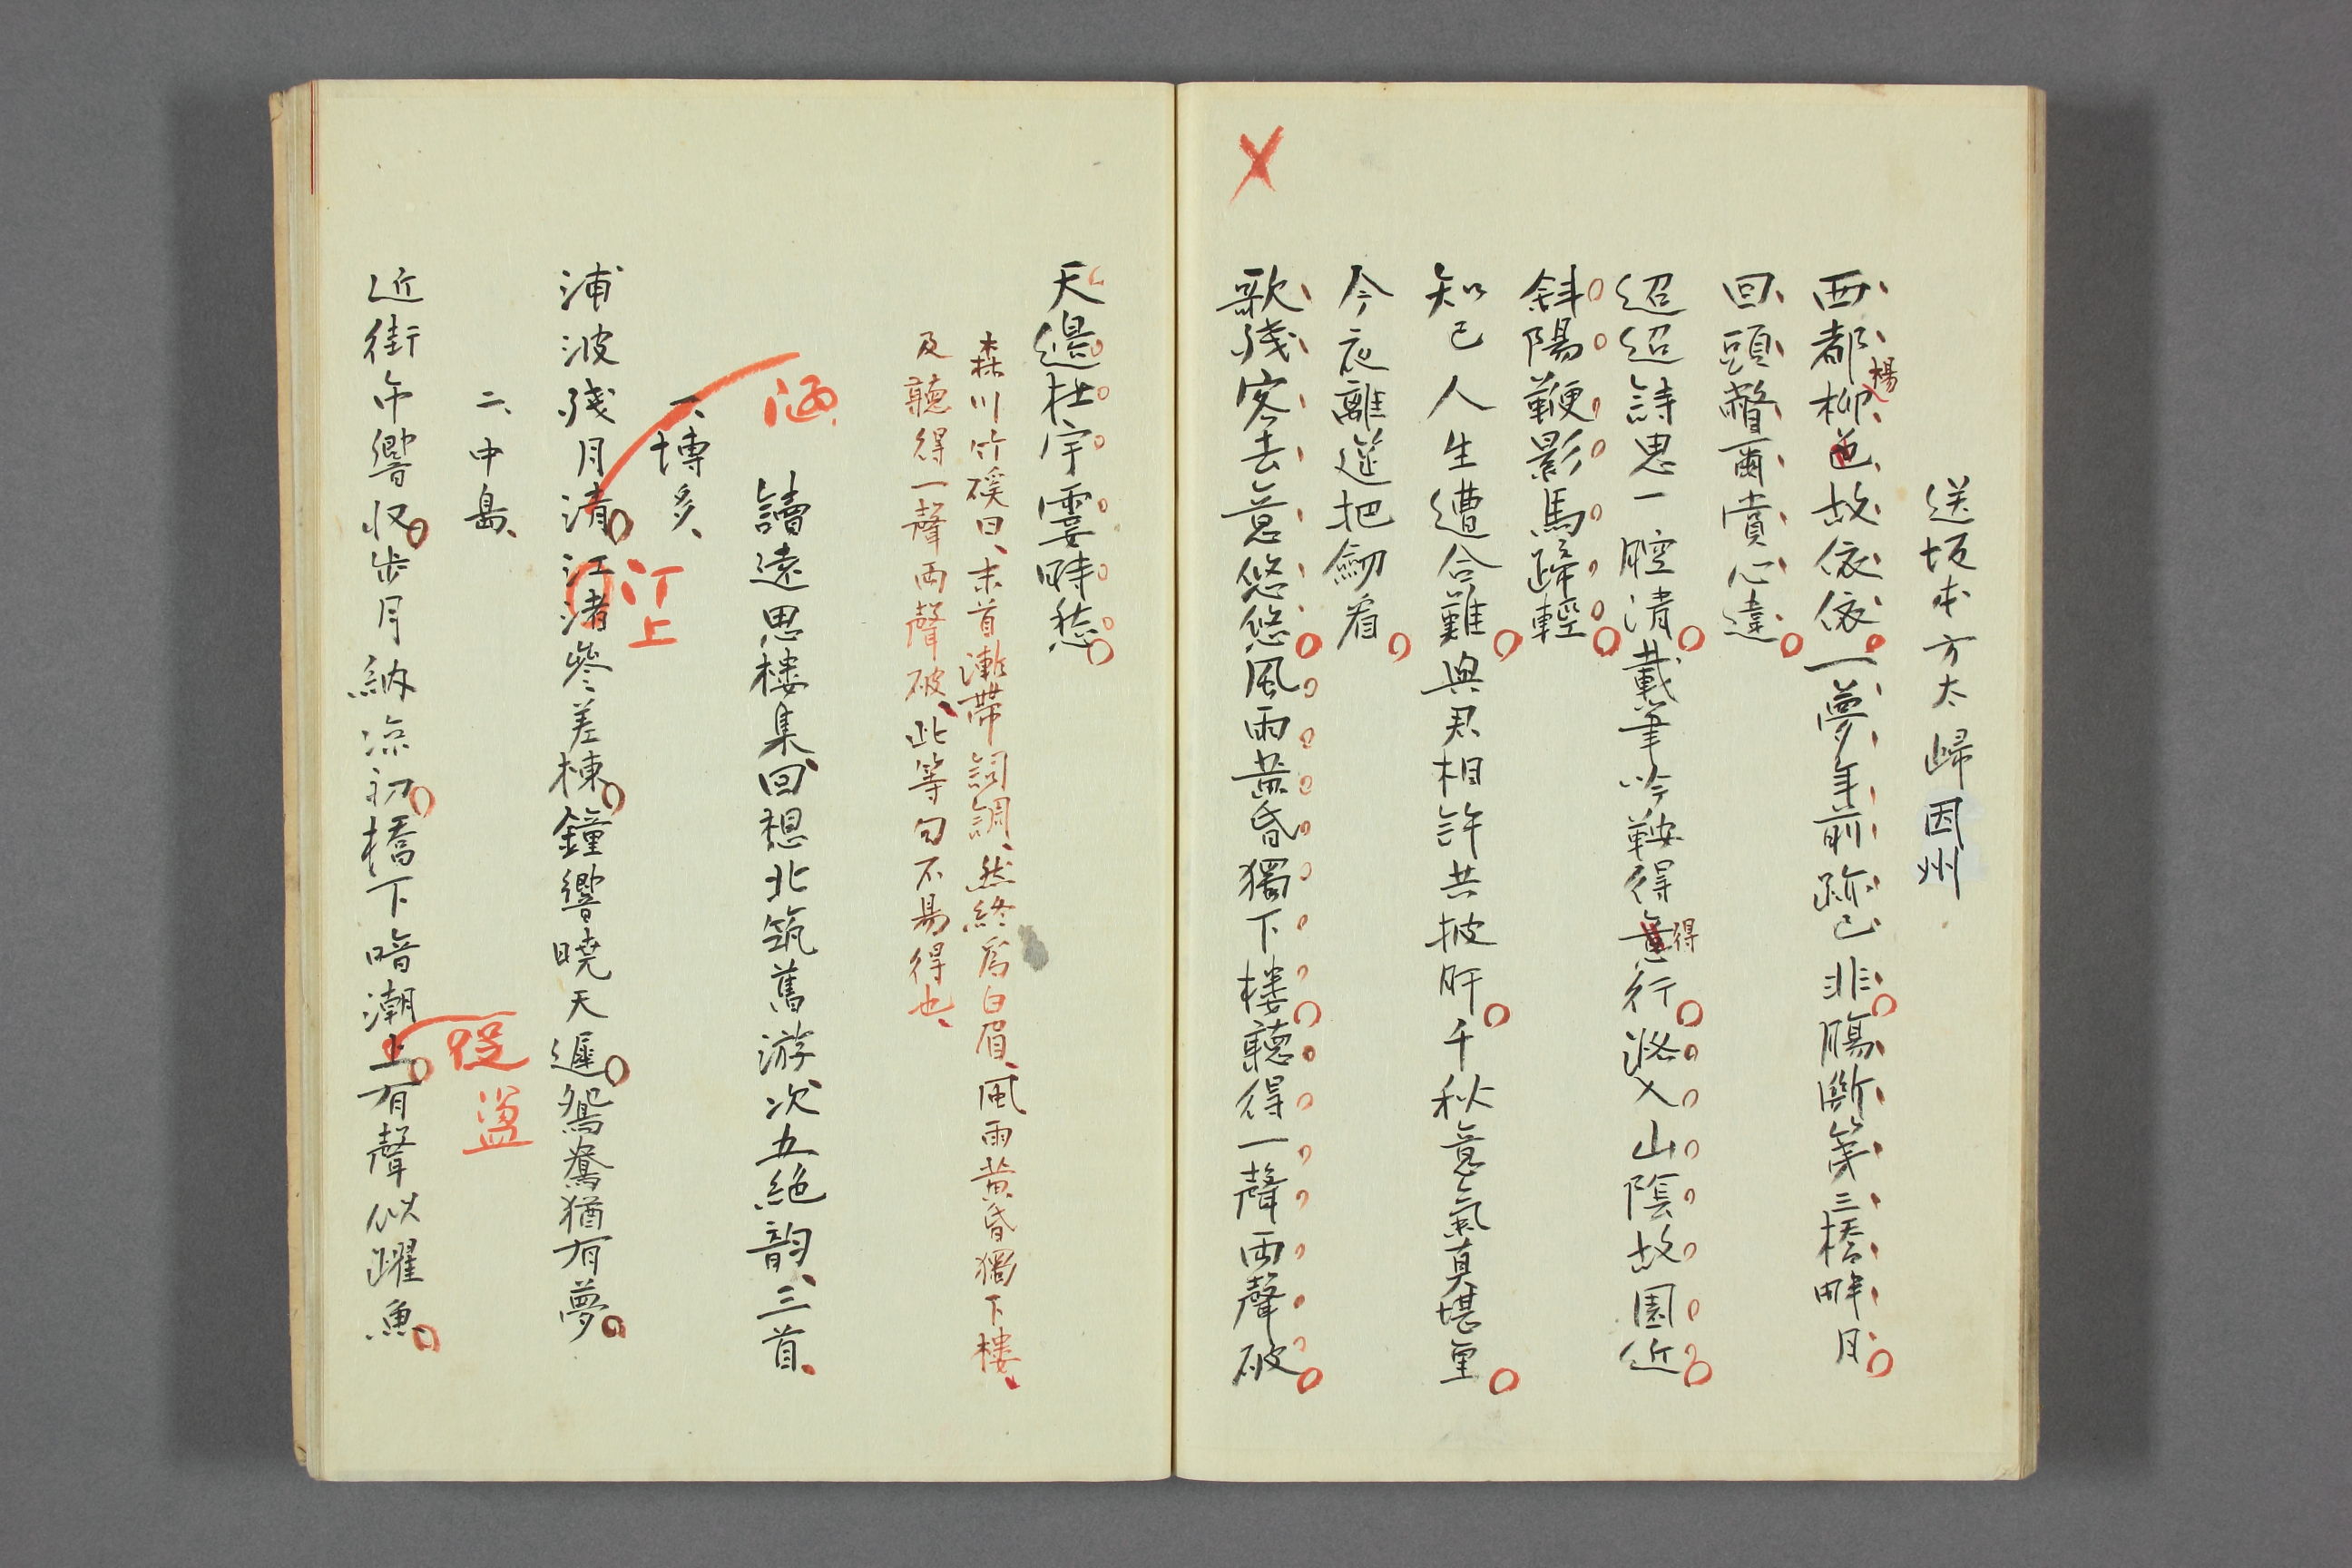 送坂本方太歸因州
西都柳色故依依一夢年前跡已非腸斷第三橋畔月
楊
回頭瞥爾賞心違
迢迢詩思一腔清載筆吟鞍得意行漸入山陰故園近
得
斜陽鞭影馬蹄輕
知己人生遭合難與君相許共披肝千秋意氣真堪重
今夜離筵把劔看
歌殘客去意悠悠風雨黄昏獨下樓聽得一聲兩聲破
天邊杜宇霎時愁
森川竹磎曰、末首漸帶詞調、然終為白眉、風雨黄昏獨下樓、
及聽得一聲兩聲破、此等句不易得也、
讀遠思樓集回想北筑舊游次五絶韵、三首、
一、博多、
浦波殘月清江渚參差棟鐘響曉天遲鴛鴦猶有夢
汀上
二、中島、
近街市響收步月納凉初橋下暗潮上有聲似躍魚